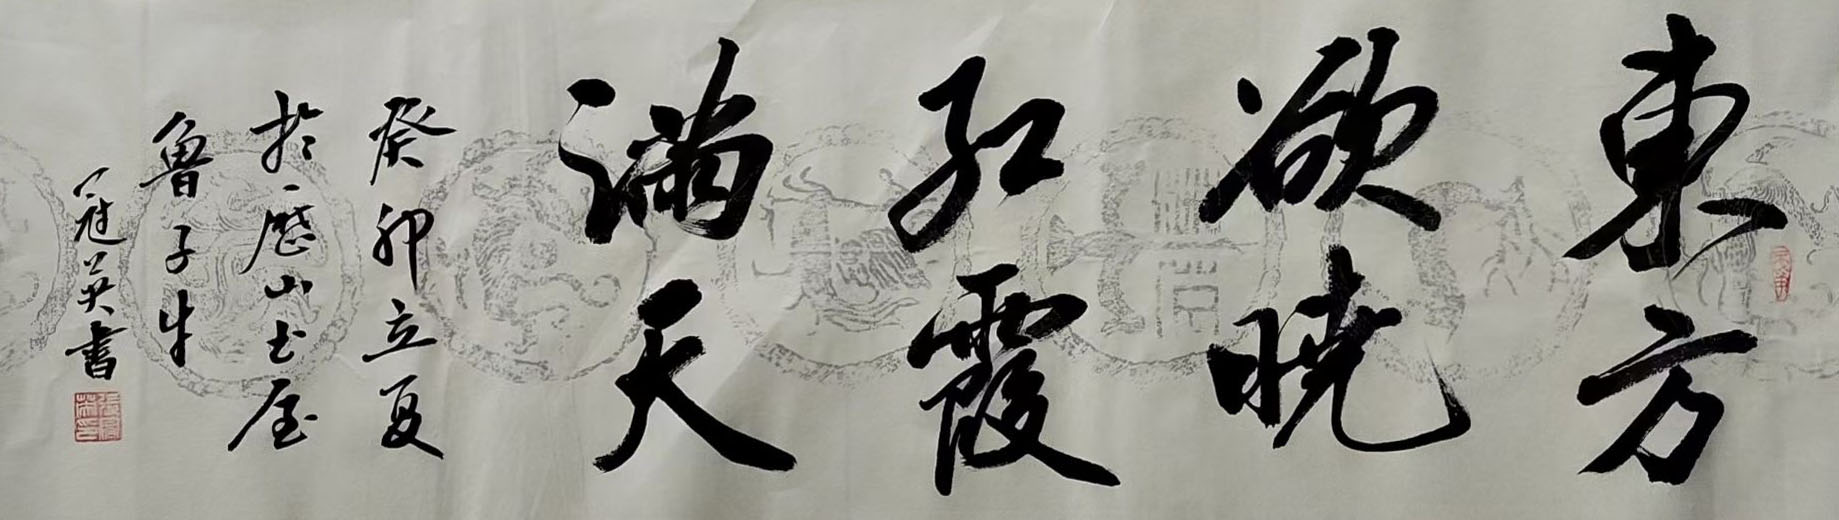 東方
欲曉
紅霞
滿天
癸卯立夏
於歷山士屋
魯子牛
冠英書